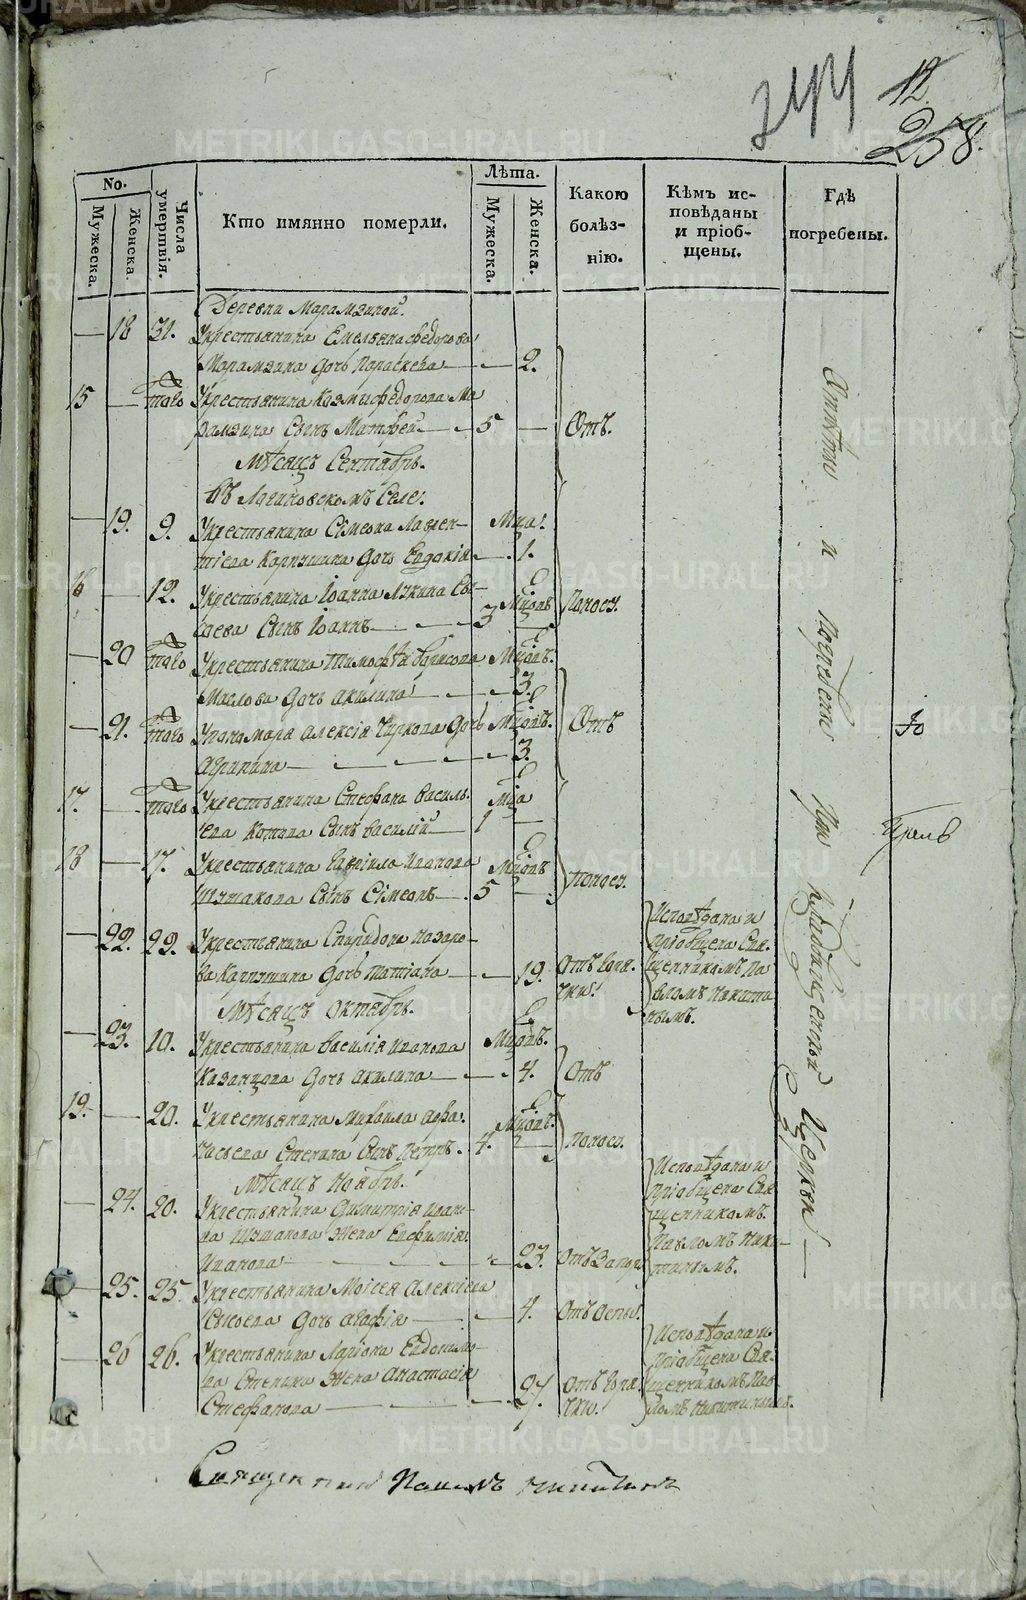 244
12
258.
No.
Мужеска.
Женска.
Числа умертвія.
Кто имянно померли.
Лѣта.
Мужеска.
Женска.
Какою болѣз-
нію.
Кѣмъ ис-
повѣданы
и пріоб-
щены.
Гдѣ
погребены.
Деревни Марамзиной.
— 18 31. Укрестьянина Емельяна Федорова
Марамзина дочь Параскева — — 2.
15 — того Укрестьянина Козмы Федорова Ма
рамзина Сынъ Матфей — 5 — Отъ.
Мѣсяцъ Сентябрь.
Въ Логиновскомъ Селе.
— 19. 9. Укрестьянина Сѵмеона Лаврен-
тіева Карпушина дочь Евдокія — 1.
16 — 12. Укрестьянина Іоанна Лукина Сы-
соева Сынъ Іоаннъ — 3 Мцовъ — Поносу.
— 20 того Укрестьянина Тимофѣя Борисова Мцовъ.
Маслова дочь Акилина — 3.
— 21. того Упономаря Алексія Чиркова дочь Мцовъ. Отъ
Агрипина — 3.
17. — того Укрестьянина Стефана Василь-
ева Котова Сынъ Василій — 1 —
18 — 17. Укрестьянина Гавріила Иванова Мцовъ
Шушакова Сынъ Сѵмеонъ — 5 — поносу.
— 22. 29. Укрестьянина Спиридона Назаро-
ва Карпушина дочь Татіана — 19. Отъ горя-
чки.
Исповѣдана и
пріобщена Свя-
щенникомъ Па
вломъ Никити
нымъ.
Мѣсяцъ Октябрь.
— 23. 10. Укрестьянина Василія Иванова Мцовъ.
Казанцова дочь Акилина — 4. Отъ
19. — 20. Укрестьянина Михаила Афа- Мцовъ.
насьева Стенина Сынъ Петръ. 4. — поносу.
Мѣсяцъ Ноябрь.
— 24. 20. Укрестьянина Димитрія Ивано-
ва Шушакова Жена Евфимія
Иванова — 23. Отъ
Исповѣдана и
пріобщена Свя-
щенникомъ
Павломъ Ники-
тинымъ.
— 25. 25. Укрестьянина Моісея Алексіева
Сысоева дочь Агафія — 4. Отъ Оспы.
— 26 26. Укрестьянина Ларіона Евдокимо-
ва Стенина Жена Анастасія
Стефанова — 27. Отъ горя-
чки.
Исповѣдана и
пріобщена Свя-
щенникомъ Пав-
ломъ Никитинымъ.
Отпѣты и погребены при кладбищенской Церкви —
Священникъ Павелъ Никитинъ
METRIKI.GASO-URAL.RU